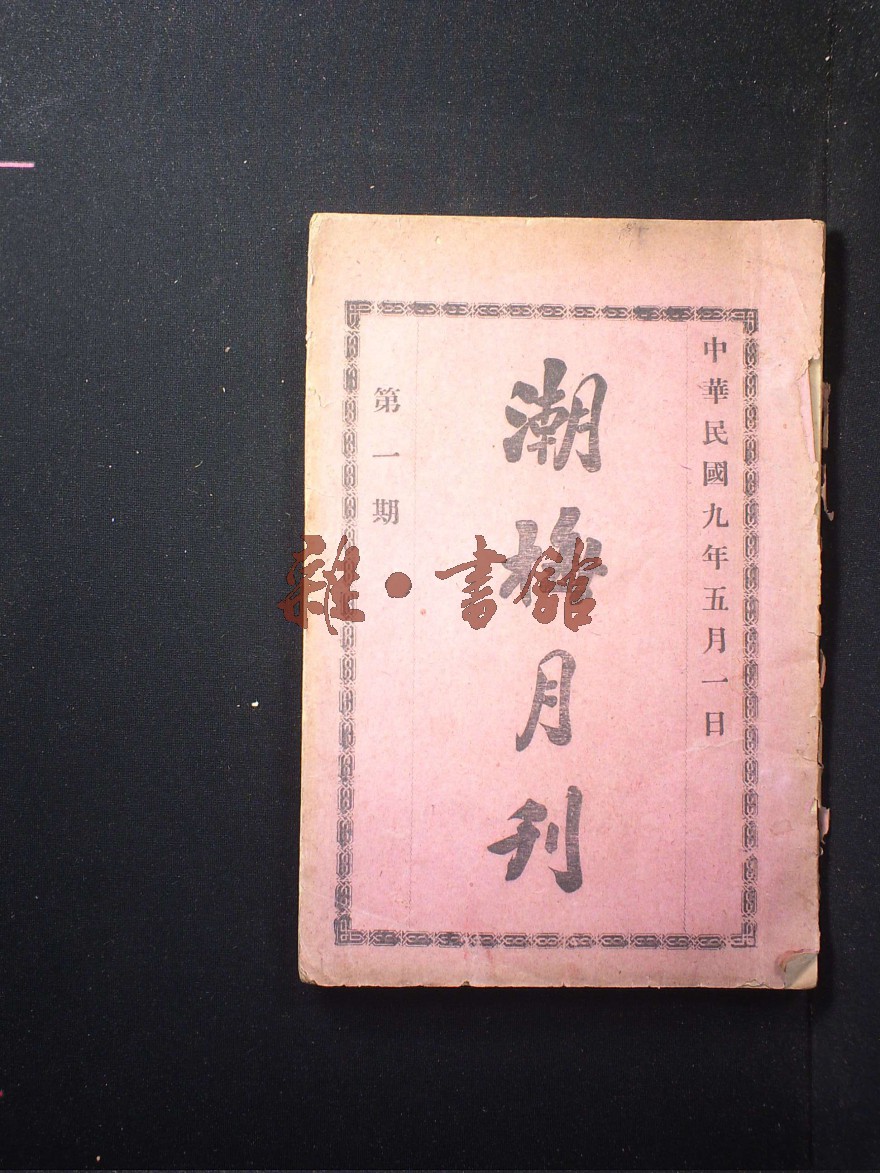 中華民國九年五月一日
潮梅月刊
第一期
雜·書館